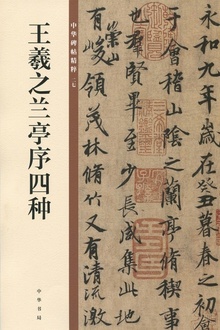 中华碑帖精粹
王羲之兰亭序四种
中华书局
永和九年岁在癸丑暮春之初
于會稽山陰之蘭亭脩稧事
也羣賢畢至少長咸集此地
有崇山
峻領茂林脩竹又有清流激